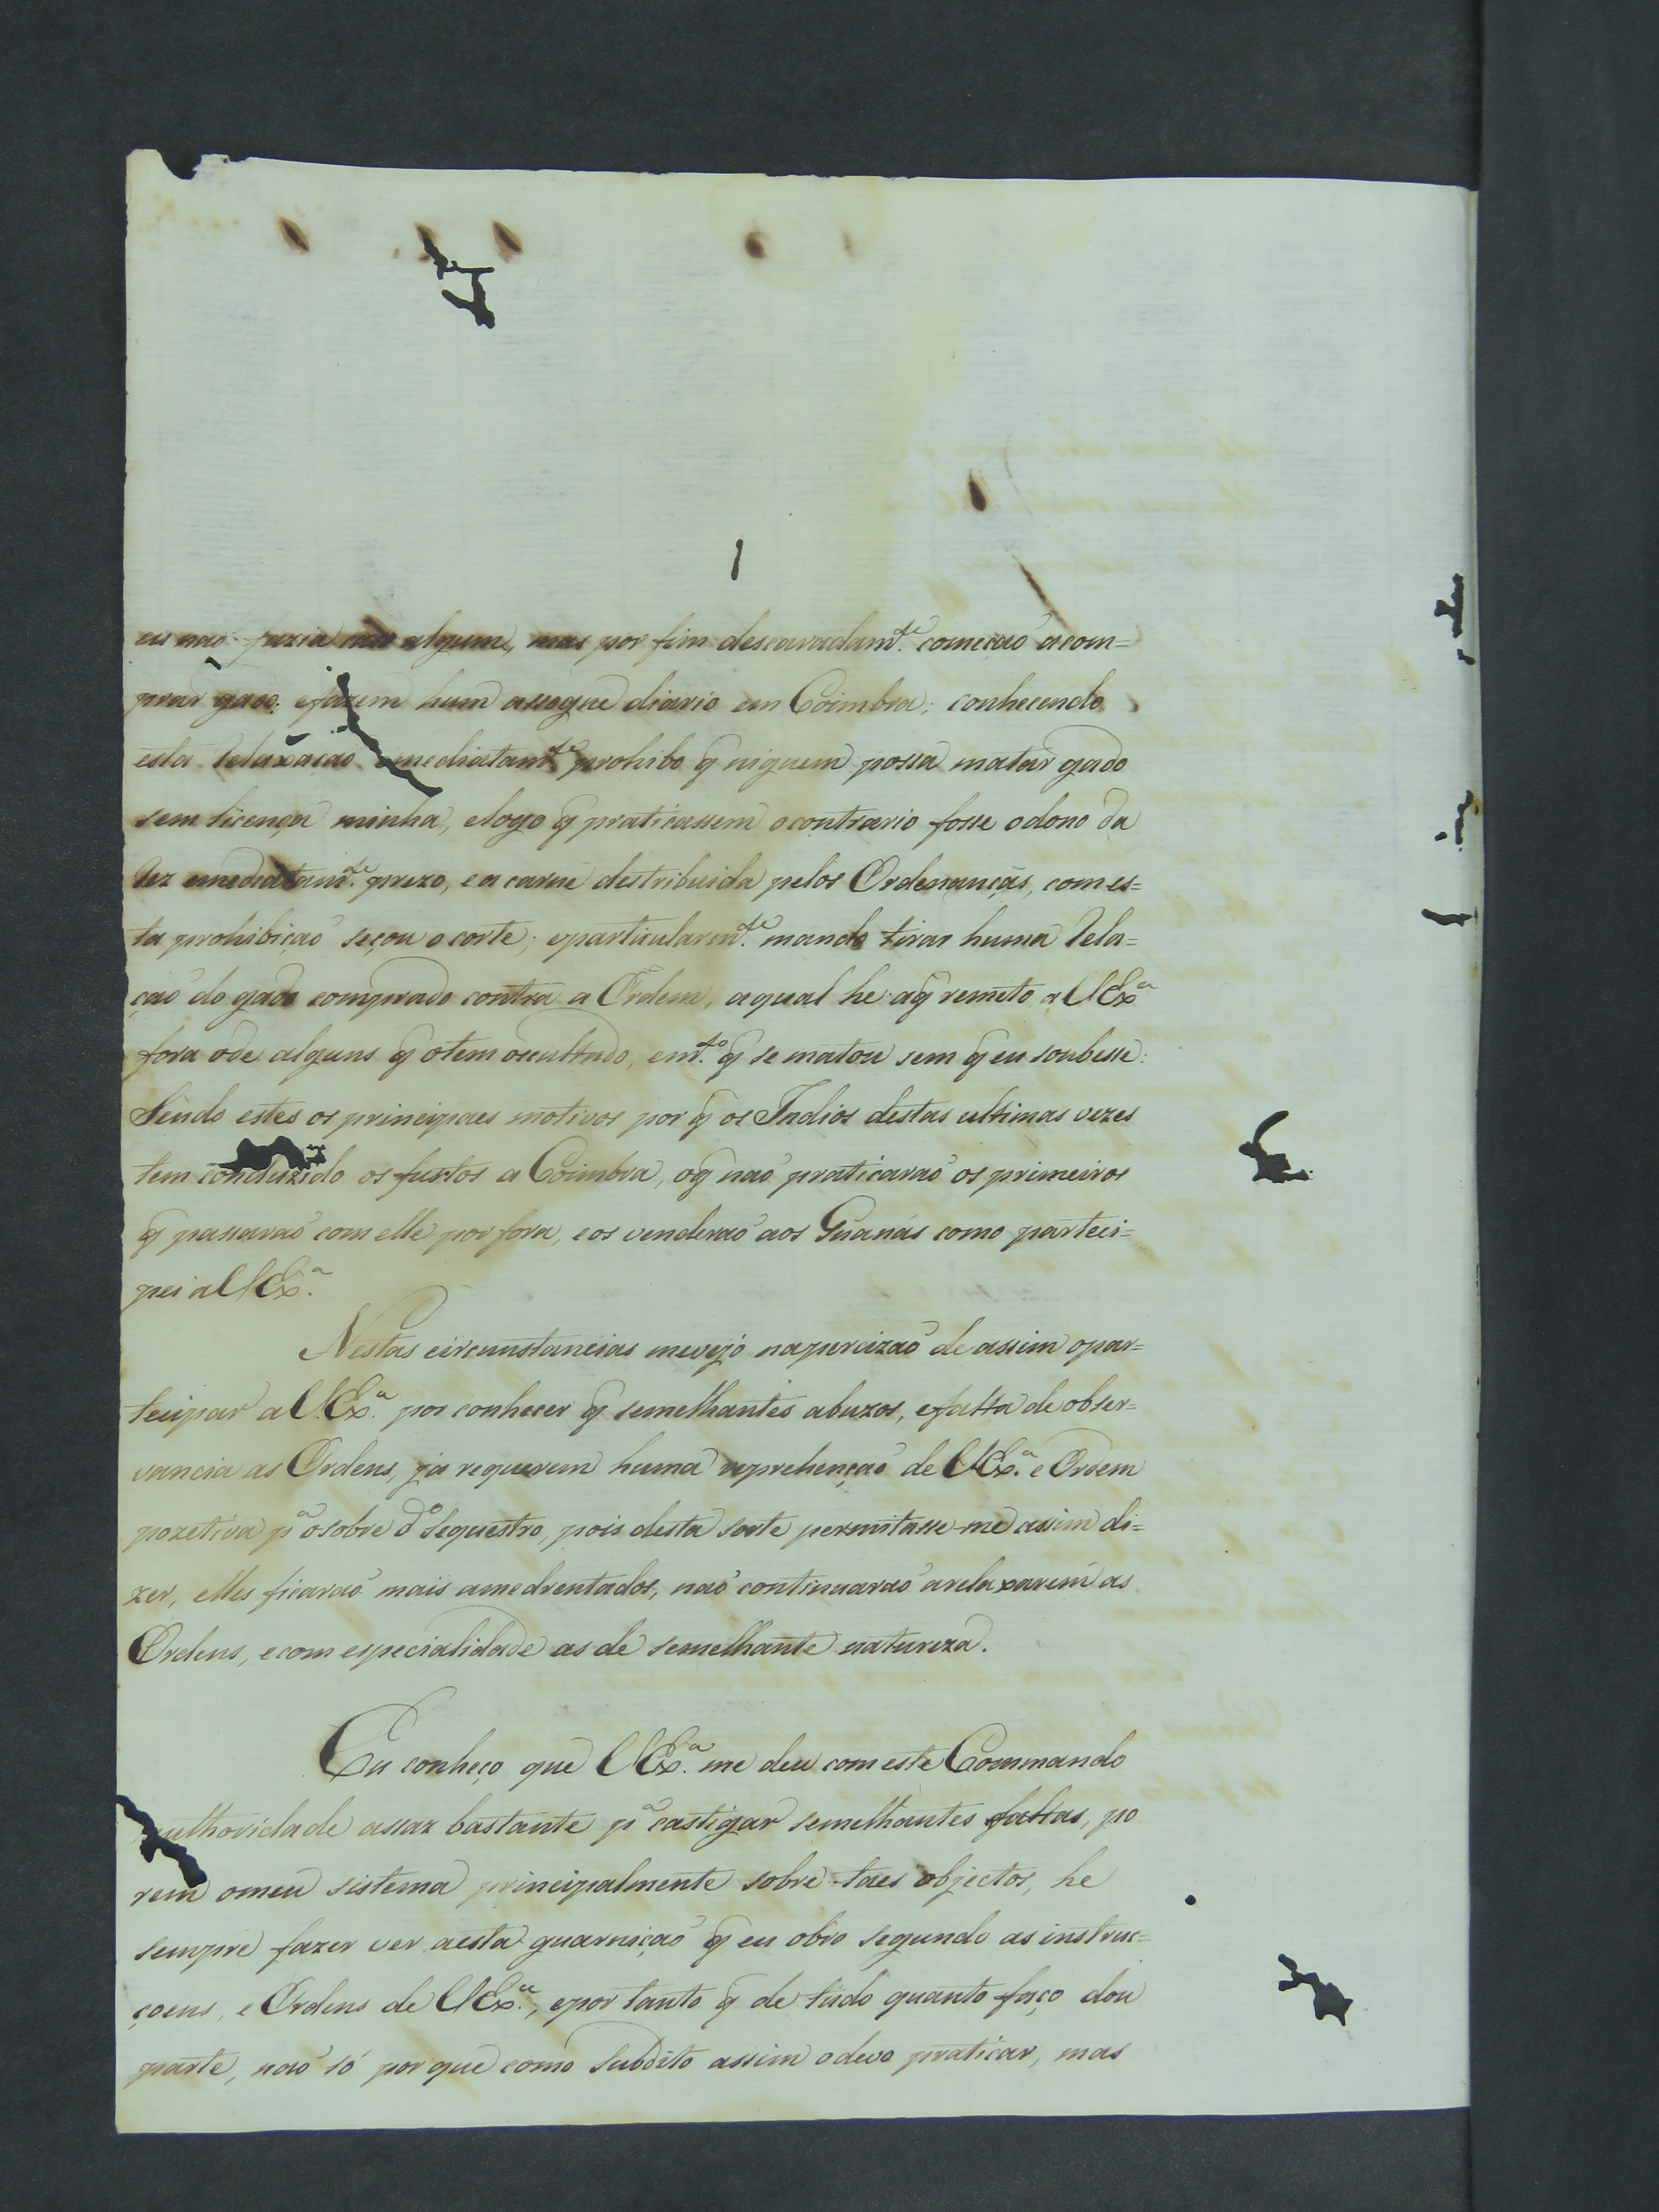 eu naõ fazia caso algum, mas por fim descaradam.te começaõ acom=
prar gado: efazem hum assogue diario em Coimbra; conhecendo
esta relaxaçaõ emediatam.te prohibo q̃ niguem possa matar gado
sem licença minha, elogo q̃ praticassem o contrario fosse odono da
rez emediatam.te prezo, e a carne destribuida pelos Ordenanças, com es=
ta prohibiçaõ seçou o corte; eparticularm.te mando tirar huma rela=
çaõ do gado comprado contra a Ordem, aqual he aq̃ remeto a VEx.a
fora ode alguns q̃ otem occultado, em.to q̃ se matou sem q̃ eu soubesse:
Sendo estes os principaes motivos por q̃ os Indios destas ultimas vezes
tem conduzido os furtos a Coimbra, oq̃ naõ praticaraõ os primeiros
q̃ passaraõ com elle por fora, e os venderaõ aos Guanás como parteci=
pei a VEx.a
Nestas circunstancias mevejo naprecizaõ de assim opar=
tecipar a VEx.a por conhecer q̃ semelhantes abuzos, efalta de obser=
vancia as Ordens, ja requerem huma reprehençaõ de VEx.a e Ordem
pozetiva p.a osobre d.o Sequestro, pois desta sorte permitasse-me assim di=
zer, elles ficaraõ mais amedrentados, naõ continuaraõ arelaxarem as
Ordens, ecom especialidade as de semelhante natureza.
Eu conheço que VEx.a me deu com este Commando
authoridade assaz bastante p.a castigar semelhantes faltas, po
rem omeu sistema principalmente sobre taes objectos, he
sempre fazer ver aesta guarniçaõ q̃ eu obro segundo as instruc=
çoens, e Ordens de VEx.a, epor tanto q̃ de tudo quanto faço dou
parte, naõ só por que como Subdito assim odevo praticar, mas